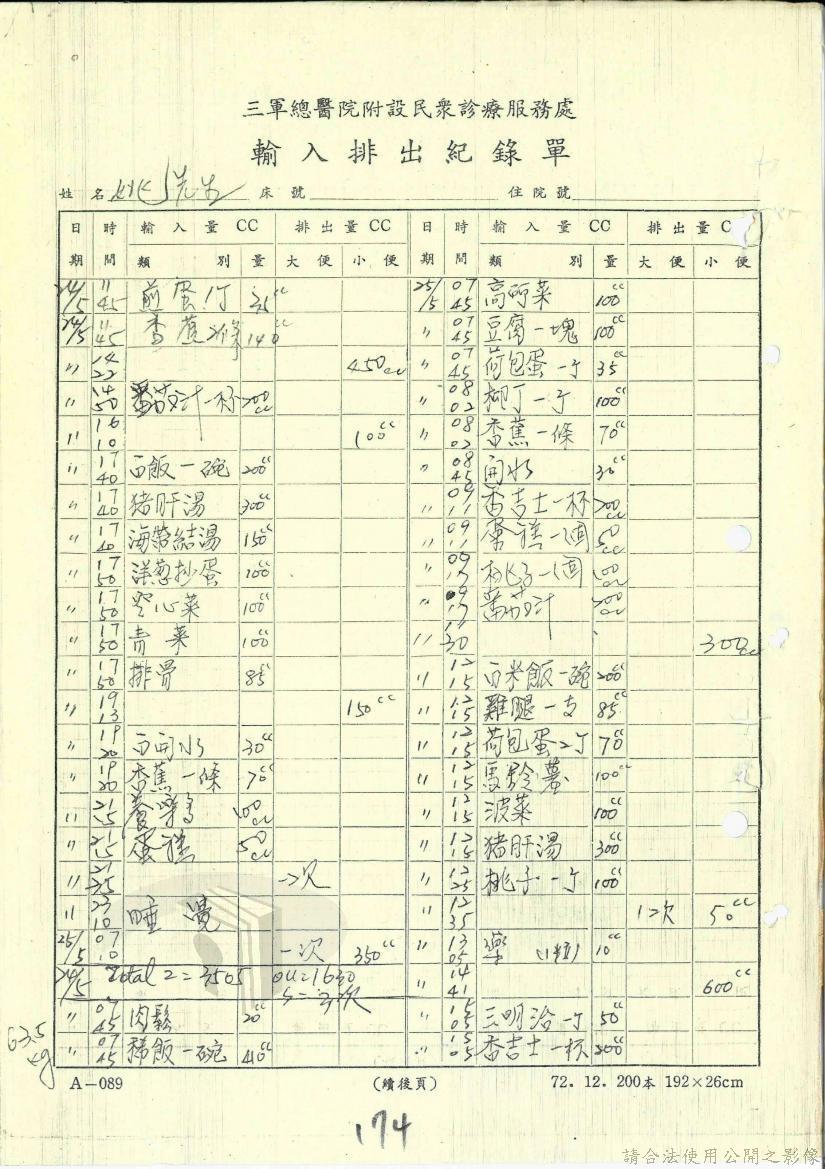 三軍總醫院附設民眾診療服務處
輸入排出紀錄單
姓名 姚先生 床號 住院號
日期 時間 輸入量CC 類別 量 排出量CC 大便 小便
24/5 11 45 煎蛋1丁 35cc
24/5 11 45 香蕉2條 140cc
〃 14 22 450cc
〃 14 50 蕃茄汁一杯 200cc
〃 16 10 100cc
〃 17 40 白飯一碗 200cc
〃 17 40 猪肝湯 300cc
〃 17 40 海帶結湯 150cc
〃 17 50 洋葱抄蛋 100cc
〃 17 50 空心菜 100cc
〃 17 50 青菜 100cc
〃 17 50 排骨 85cc
〃 19 13 150cc
〃 19 20 白開水 30cc
〃 19 20 香蕉一條 70cc
〃 21 15 養樂多 100cc
〃 21 15 蛋糕 50cc
〃 21 35 一次
〃 23 10 睡覺
25/5 07 10 一次 350cc
24/5 Total 2=3505 ou=1630
s=三次
〃 07 45 肉鬆 20cc
〃 07 45 稀飯一碗 410cc
63.5 kg
日期 時間 輸入量CC 類別 量 排出量CC 大便 小便
25/5 07 45 高呵菜 100cc
〃 07 45 豆腐一塊 100cc
〃 07 45 荷包蛋一丁 35cc
〃 08 02 柳丁一丁 100cc
〃 08 02 香蕉一條 70cc
〃 08 45 開水 30cc
〃 09 11 香吉士一杯 200cc
〃 09 11 蛋糕一個 50cc
〃 09 17 桃子一個 100cc
〃 09 17 蕃茄汁 200cc
〃 11 30 300cc
〃 12 15 白米飯一碗 200cc
〃 12 15 雞腿一支 85cc
〃 12 15 荷包蛋2丁 70cc
〃 12 15 馬鈴薯 100cc
〃 12 15 波菜 100cc
〃 12 15 猪肝湯 300cc
〃 12 25 桃子一丁 100cc
〃 12 35 1次 50cc
〃 13 05 藥(1粒) 10cc
〃 14 41 600cc
〃 15 05 三明治一丁 50cc
〃 15 05 香吉士一杯 200cc
A-089 (續後頁) 72.12.200本 192×26cm
174
請合法使用公開之影像